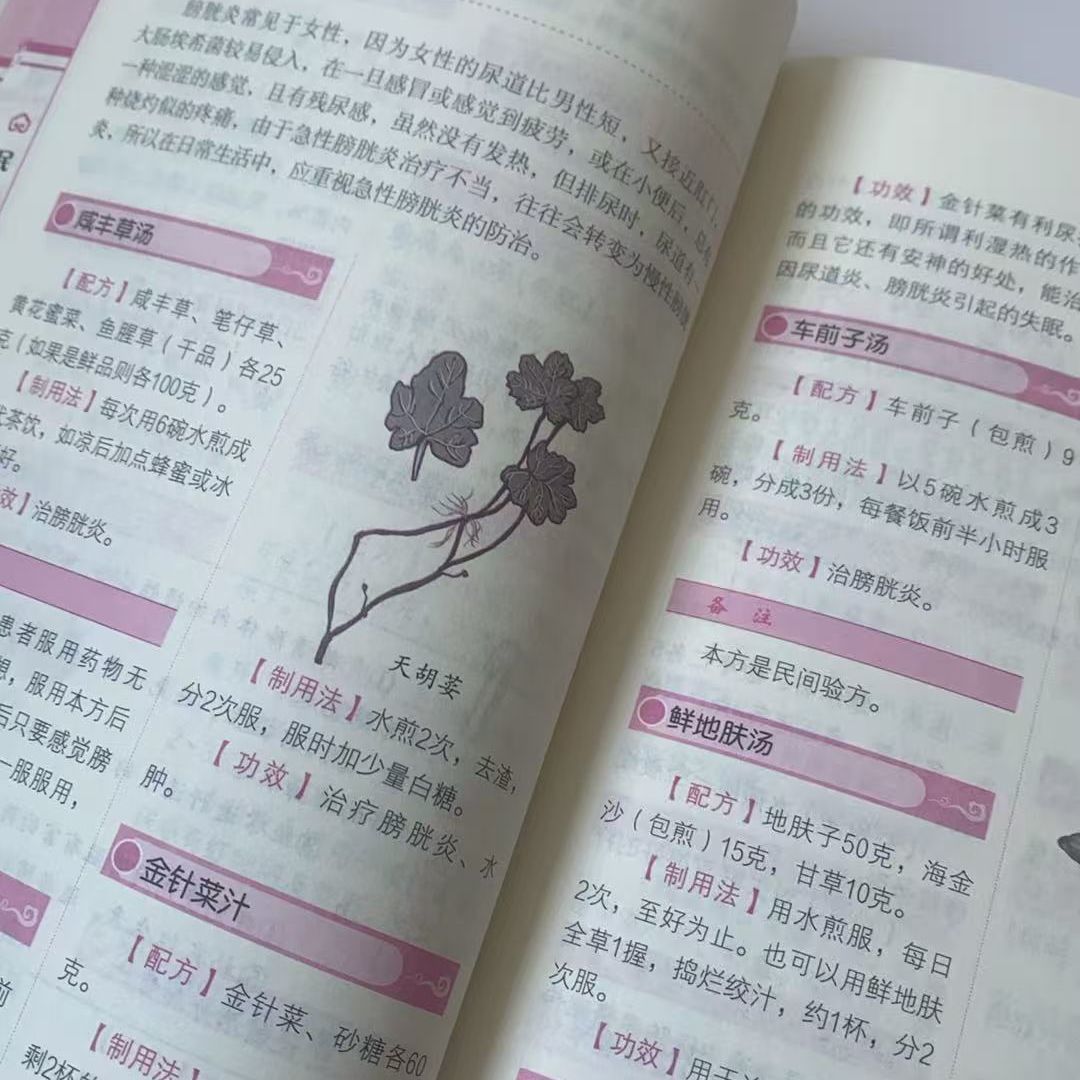 膀胱炎常见于女性，因为女性的尿道比男性短，又接近肛门，
大肠埃希菌较易侵入，在一旦感冒或感觉到疲劳，或在小便后，总有
一种涩涩的感觉，且有残尿感，虽然没有发热，但排尿时，尿道有一
种烧灼似的疼痛，由于急性膀胱炎治疗不当，往往会转变为慢性膀胱
炎，所以在日常生活中，应重视急性膀胱炎的防治。
咸丰草汤
【配方】咸丰草、笔仔草、
黄花蜜菜、鱼腥草（干品）各25
克（如果是鲜品则各100克）。
【制用法】每次用6碗水煎成
代茶饮，如凉后加点蜂蜜或冰
好。
效】治膀胱炎。
患者服用药物无
想，服用本方后
后只要感觉膀
一服服用，
前
天胡荽
【制用法】水煎2次，去渣，
分2次服，服时加少量白糖。
【功效】治疗膀胱炎、水
肿。
金针菜汁
【配方】金针菜、砂糖各60
克。
【制用法】
剩2杯
【功效】金针菜有利尿
的功效，即所谓利湿热的作
而且它还有安神的好处，能治
因尿道炎、膀胱炎引起的失眠。
车前子汤
【配方】车前子（包煎）9
克。
【制用法】以5碗水煎成3
碗，分成3份，每餐饭前半小时服
用。
【功效】治膀胱炎。
备注
本方是民间验方。
鲜地肤汤
【配方】地肤子50克，海金
沙（包煎）15克，甘草10克。
【制用法】用水煎服，每日
2次，至好为止。也可以用鲜地肤
全草1握，捣烂绞汁，约1杯，分2
次服。
【功效】用于